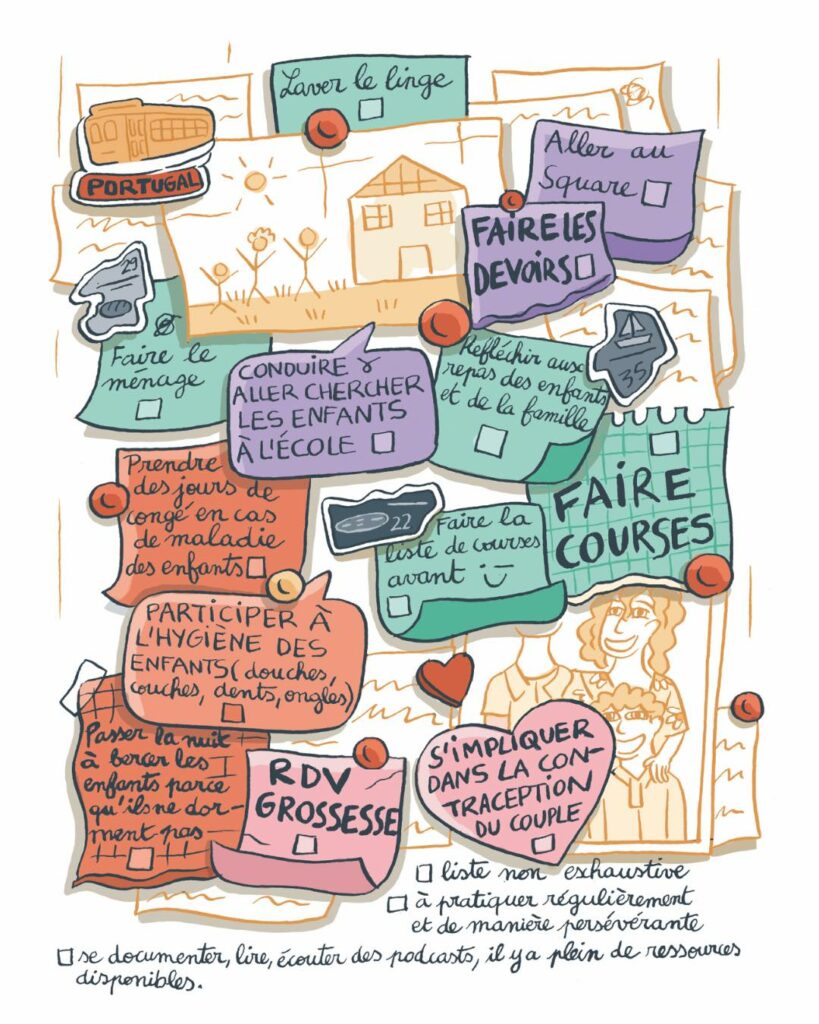 Laver le linge
PORTUGAL
Aller au
Square
FAIRE LES
DEVOIRS
29
Faire le
ménage
CONDUIRE &
ALLER CHERCHER
LES ENFANTS
À L'ÉCOLE
Réfléchir aux
repas des enfants
et de la famille
35
Prendre
des jours de
congé en cas
de maladie
des enfants
22
Faire la
liste de courses
avant
FAIRE
COURSES
PARTICIPER À
L'HYGIÈNE DES
ENFANTS (douches,
couches, dents, ongles)
Passer la nuit
à bercer les
enfants parce
qu'ils ne dor-
ment pas
RDV
GROSSESSE
S'IMPLIQUER
DANS LA CON-
TRACEPTION
DU COUPLE
liste non exhaustive
à pratiquer régulièrement
et de manière persévérante
se documenter, lire, écouter des podcasts, il y a plein de ressources
disponibles.